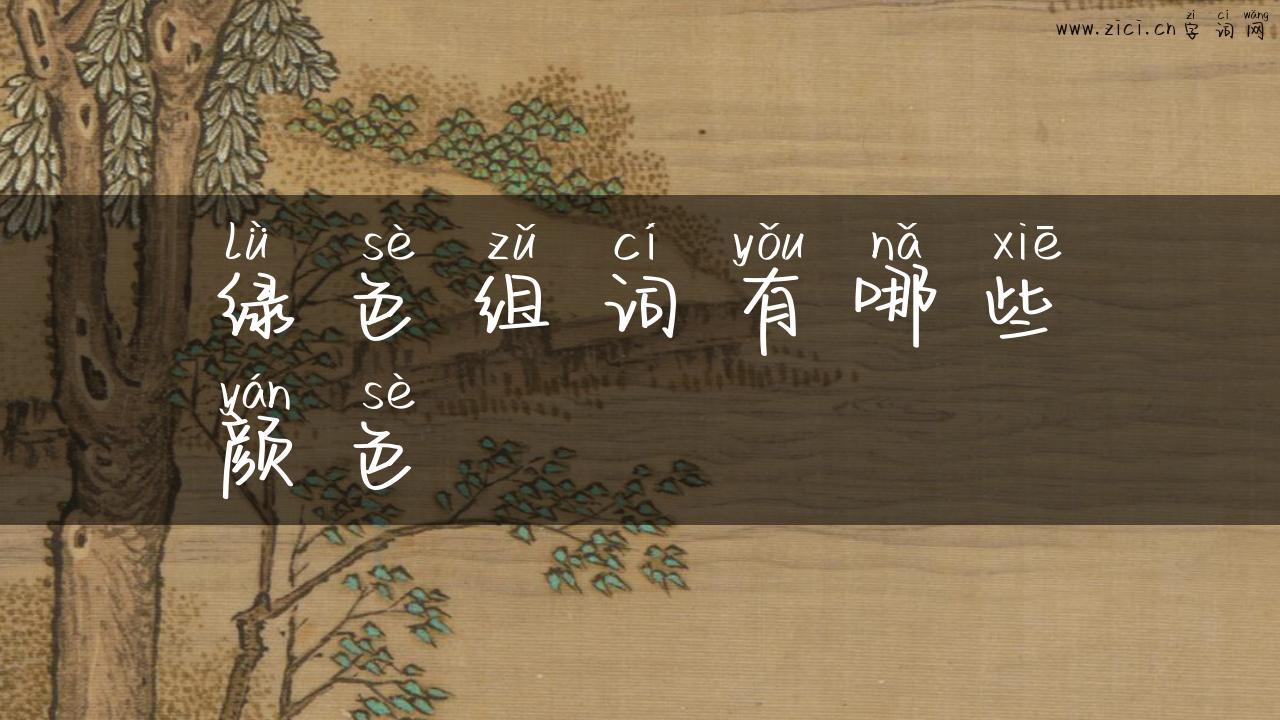 zì cí wǎng
www.zici.cn 字词网
lǜ sè zǔ cí yǒu nǎ xiē
绿色组词有哪些
yán sè
颜色